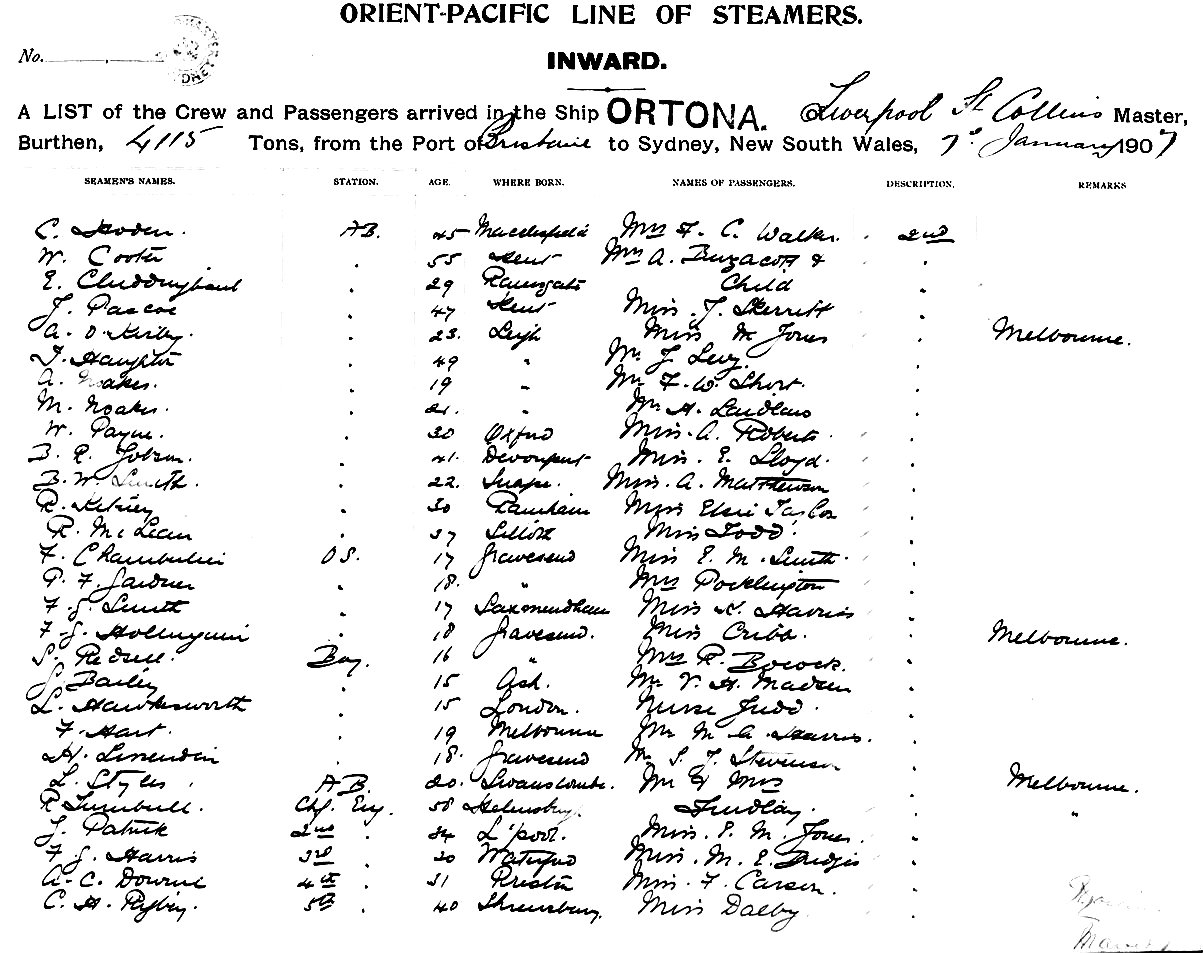 ORIENT-PACIFIC LINE OF STEAMERS.
No.
INWARD.
A LIST of the Crew and Passengers arrived in the Ship ORTONA. Liverpool St Collins Master,
Burthen, 4115 Tons, from the Port of Brisbane to Sydney, New South Wales, 7th January 1907
SEAMEN'S NAMES. STATION. AGE. WHERE BORN. NAMES OF PASSENGERS. DESCRIPTION. REMARKS
C. AB. 45 Macclesfield Mrs F. C. Walker. 2nd
W. Cooter 55 Kent Mrs A. Buzacott &
E. 29 Ramsgate Child
J. Pascoe 47 Kent Miss J. Skerritt
A. O Kirby. 23. Leigh Miss M Jones Melbourne.
49 " Mr J Levy.
A. Noakes. 19 " Mr F. W. Short.
M. Noakes. 21. Mr H.
W. Payne. 30 Oxford Miss. A. Roberts.
B. R. Jobson. 41. Devonport Miss. E. Lloyd.
B. W Smith. 22. Snape. Miss. A. Matthewson
R. 30 Rainham Miss Elsie Taylor
R. McLean 37 Miss Todd.
F. Chamberlain O.S. 17 Gravesend Miss E. M. Smith.
P. F. Gardner 18. " Mrs Pocklington
F. G. Smith 17 Saxmundham Miss K. Harris
F. G. 18 Gravesend. Miss Cribb. Melbourne.
S. Boy. 16 " Mrs R. Bocock.
G. Bailey 15 Ash. Mr V. H. Madsen
L. Hawkesworth 15 London. Nurse Judd.
F. Hart. 19 Melbourne Mr M A Harris.
H. 18. Gravesend Mr S. J. Stevenson
L. Styles. A.B. 20. Swanscombe. Mr & Mrs Melbourne.
R Turnbull. Chf. Eng. 58 Helensburg. Findlay. "
J. Patrick 2nd 34 L'pool. Miss. E. M. Jones.
F. J. Harris 3rd 30 Waterford Miss. M. E.
A. C. Downe 4th 31 Miss. F. Carson.
C. H. Rigby. 5th 40 Shrewsbury. Miss Dalby